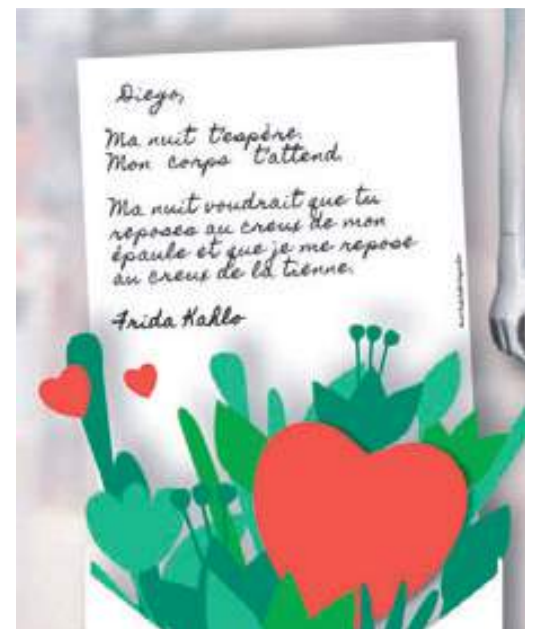 Diego,
Ma nuit t'espère.
Mon corps t'attend.
Ma nuit voudrait que tu
reposes au creux de mon
épaule et que je me repose
au creux de la tienne.
Frida Kahlo